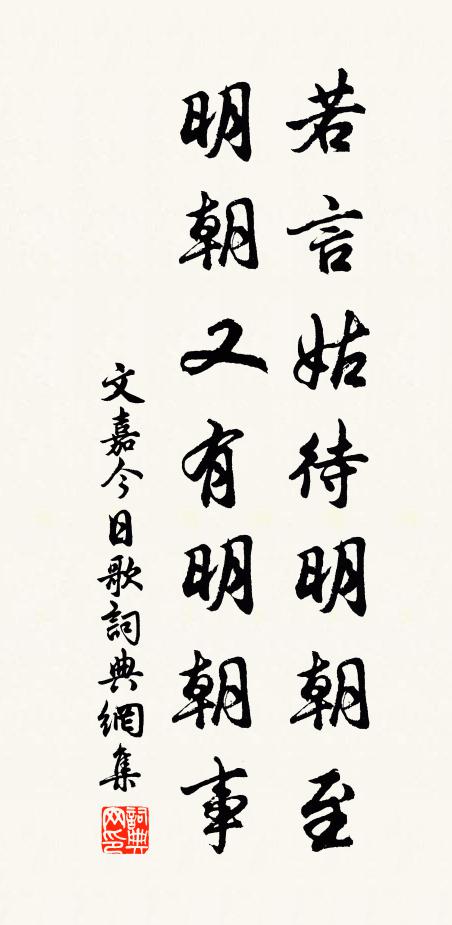 若言姑待明朝至
明朝又有明朝事
文嘉今日歌詞典網集
詞典网印